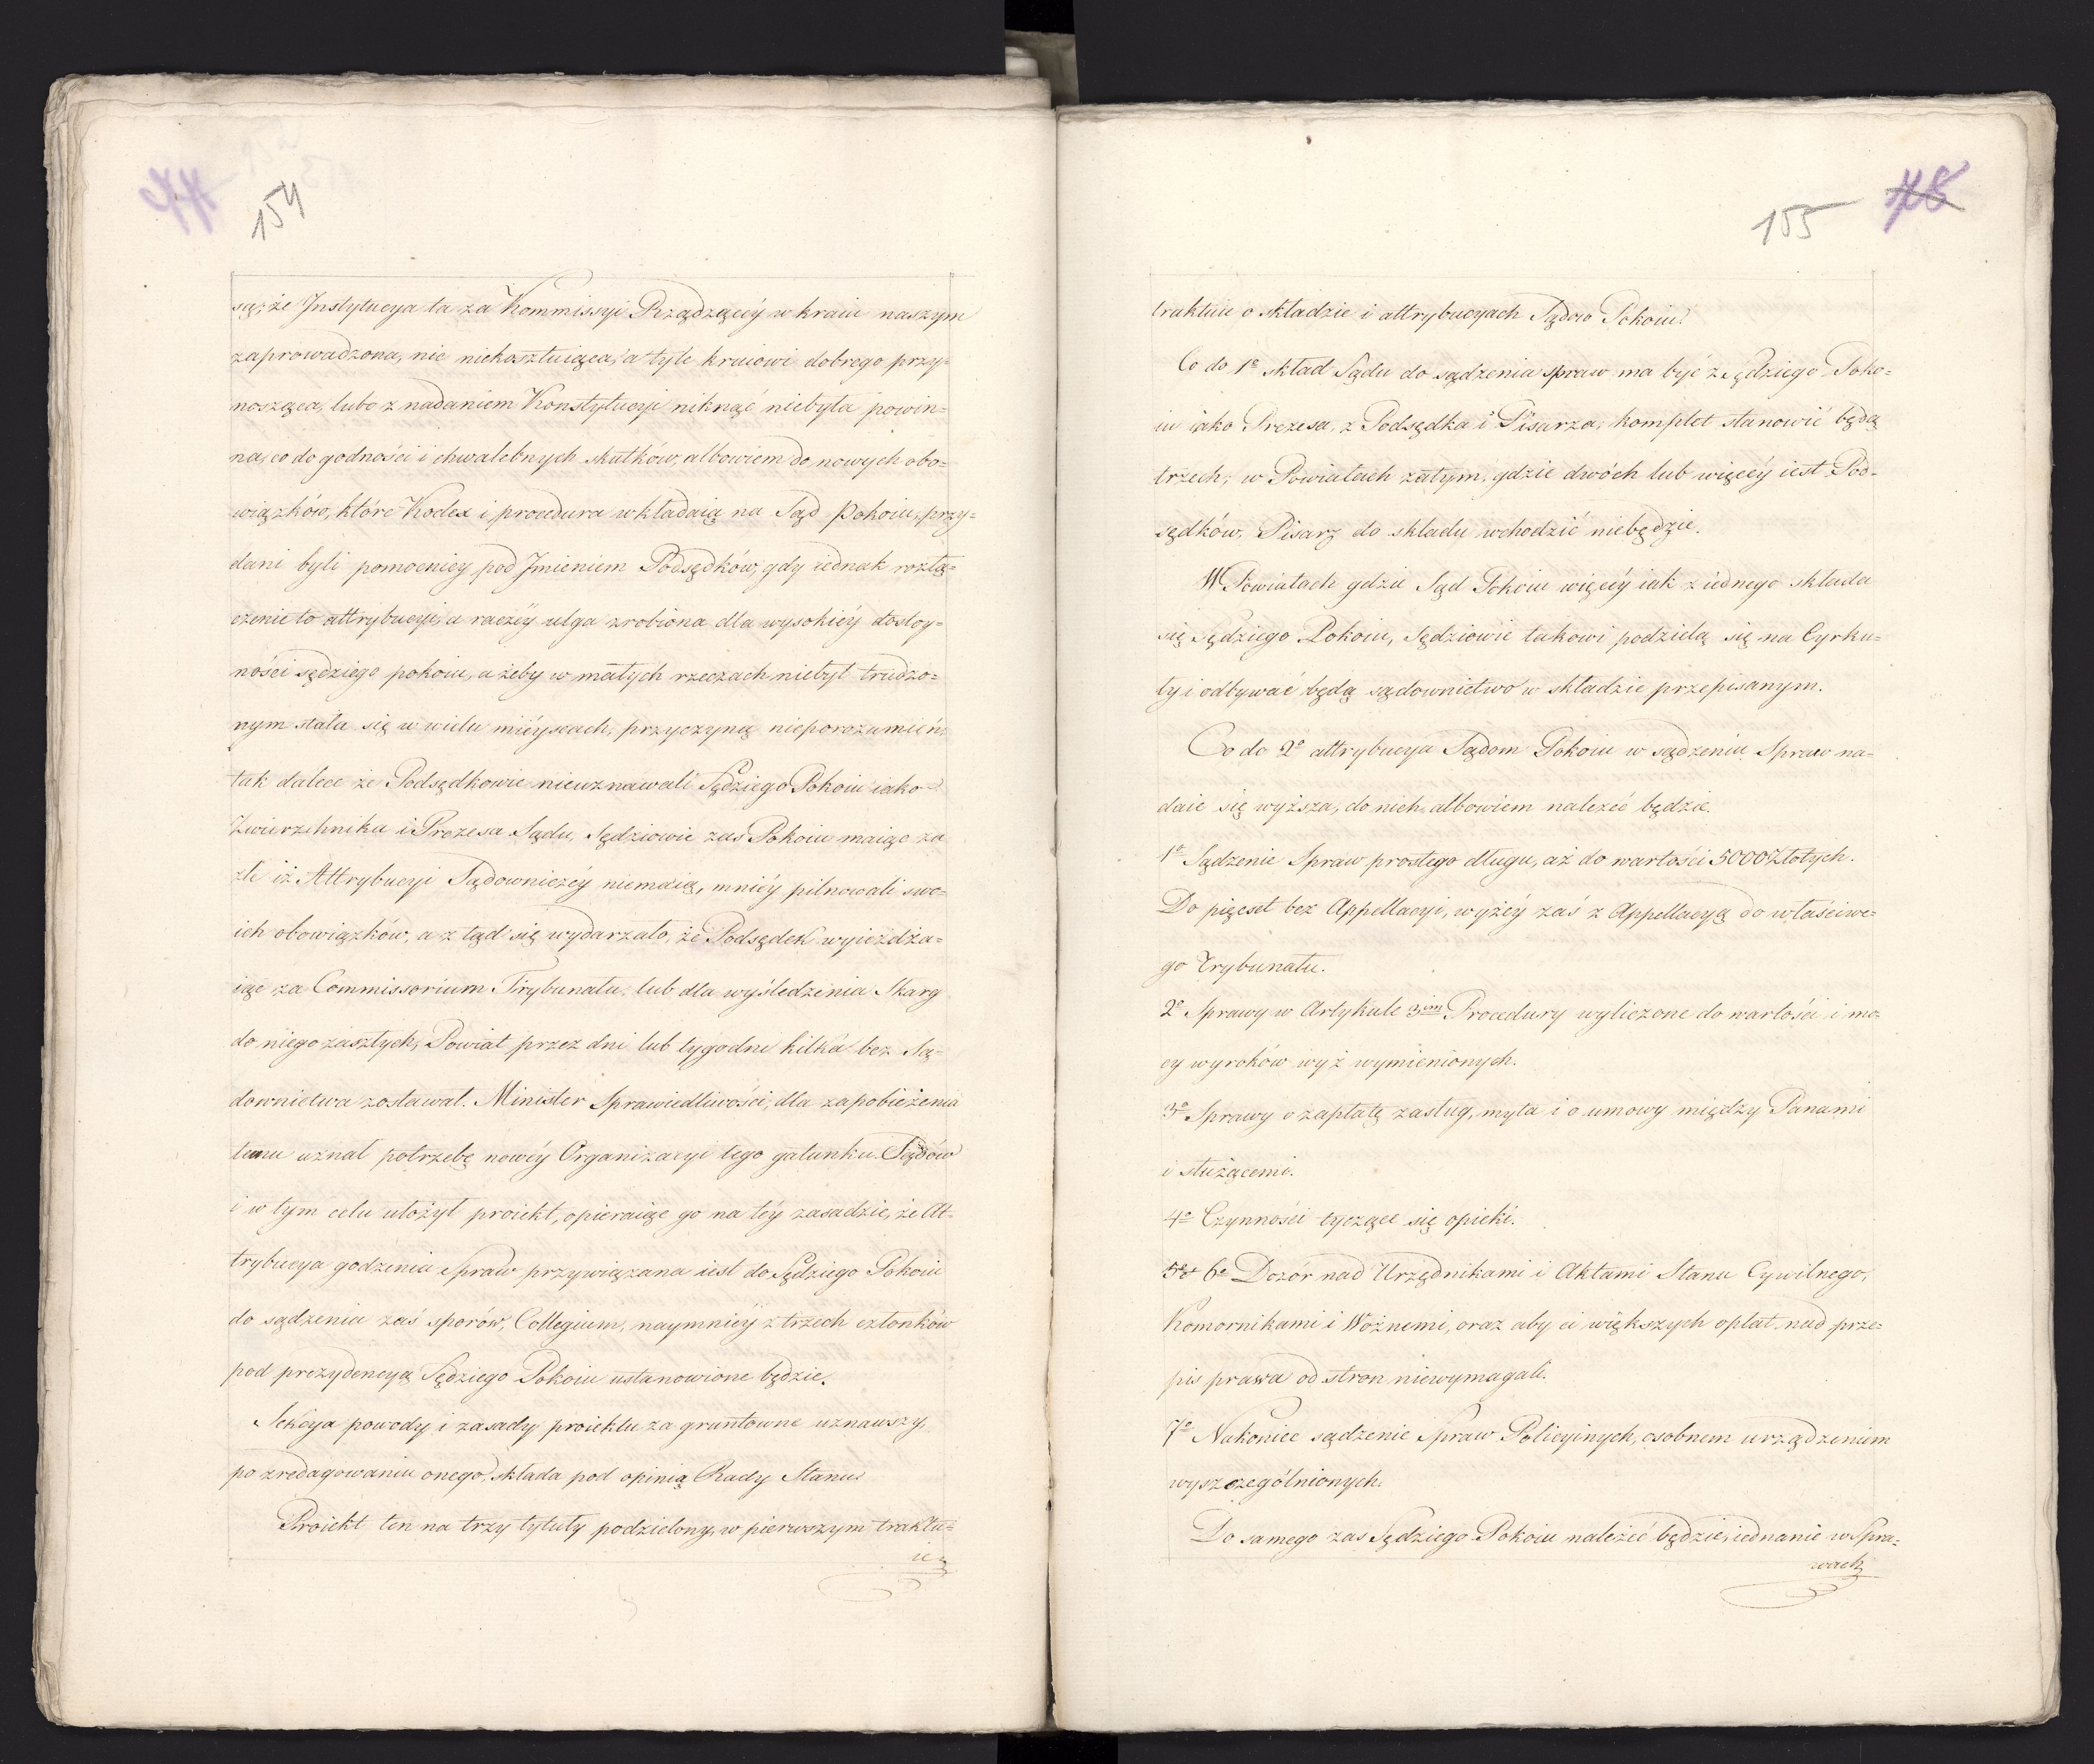 77
154
są, że Jnstytucya ta za Kommissyi Rządzącéy w kraiu naszym
zaprowadzona, nic niekosztuiąca, a tyle kraiowi dobrego przy=
nosząca, lubo z nadaniem Konstytucyi niknąć niebyła powin=
na, co do godności i chwalebnych skutków, albowiem do nowych obo=
wiązków, które Kodex i procedura wkładaią na Sąd Pokoiu, przy=
dani byli pomocnicy pod Jmieniem Podsędków, gdy iednak rozłą=
czenie to attrybucyi, a raczéy ulga zrobiona dla wysokiéy dostoy=
ności sędziego pokoiu, ażeby w małych rzeczach niebył trudzo=
nym stała się w wielu mieyscach, przyczyną nieporozumień,
tak dalece że Podsędkowie nieuznawali Sędziego Pokoiu iako
Zwierzchnika i Prezesa Sądu, Sędziowie zas Pokoiu maiąc za
złe iż Attrybucyi Sądowniczéy niemaią, mniéy pilnowali swo=
ich obowiązków, a z tąd się wydarzało, że Podsędek wyieżdża=
iąc za Commissorium Trybunału, lub dla wyśledzenia Skarg
do niego zaszłych, Powiat przez dni lub tygodni kilka bez Są=
downictwa zostawał. Minister Sprawiedliwości, dla zapobieżenia
temu uznał potrzebę nowéy Organizacyi tego gatunku Sądów
i w tym celu ułożył proiekt, opieraiąc go na téy zasadzie, że At=
trybucya godzenia Spraw przywiązana iest do Sędziego Pokoiu
do sądzenia zaś sporów, Collegium, naymniéy z trzech członków
pod prezydencyą Sędziego Pokoiu ustanowione będzie.
Sekcya powody i zasady proiektu za gruntowne uznawszy,
po zredagowaniu onego, składa pod opinią Rady Stanu.
Proiekt ten na trzy tytuły podzielony, w pierwszym traktu=
ie
155
78
traktuie o składzie i attrybucyach Sądow Pokoiu.
Co do 1º skład Sądu do sądzenia spraw ma być z Sędziego Poko=
iu iako Prezesa, z Podsędka i Pisarza, komplet stanowić będą
trzech; w Powiatach zatym, gdzie dwóch lub więcéy iest Pod=
sędków, Pisarz do składu wchodzić niebędzie.
W Powiatach gdzie Sąd Pokoiu więcéy iak z iednego składa
się Sędziego Pokoiu, Sędziowie takowi podzielą się na Cyrku=
ły i odbywać będą sądownictwo w składzie przepisanym.
Co do 2º attrybucya Sądom Pokoiu w sądzeniu Spraw na=
daie się wyższa, do nich albowiem należéć będzie.
1º Sądzenie Spraw prostego długu, aż do wartości 5000 Złotych.
Do pięcset bez Appellacyi, wyżéy zaś z Appellacyą do właściwe=
go Trybunału.
2º Sprawy w Artykule 3im Procedury wyliczone do wartości i mo=
cy wyroków wyż wymienionych.
3º Sprawy o zapłatę zasług, myta i o umowy między Panami
i służącemi.
4º Czynności tyczące się opieki.
5º et 6º Dozór nad Urzędnikami i Aktami Stanu Cywilnego,
Komornikami i Woźnemi, oraz aby ci większych opłat nad prze=
pis prawa od stron niewymagali.
7º Nakoniec sądzenie Spraw Policyinych, osobnem urządzeniem
wyszczególnionych.
Do samego zas Sędziego Pokoiu należéć będzie, iednanie w Spra=
wach